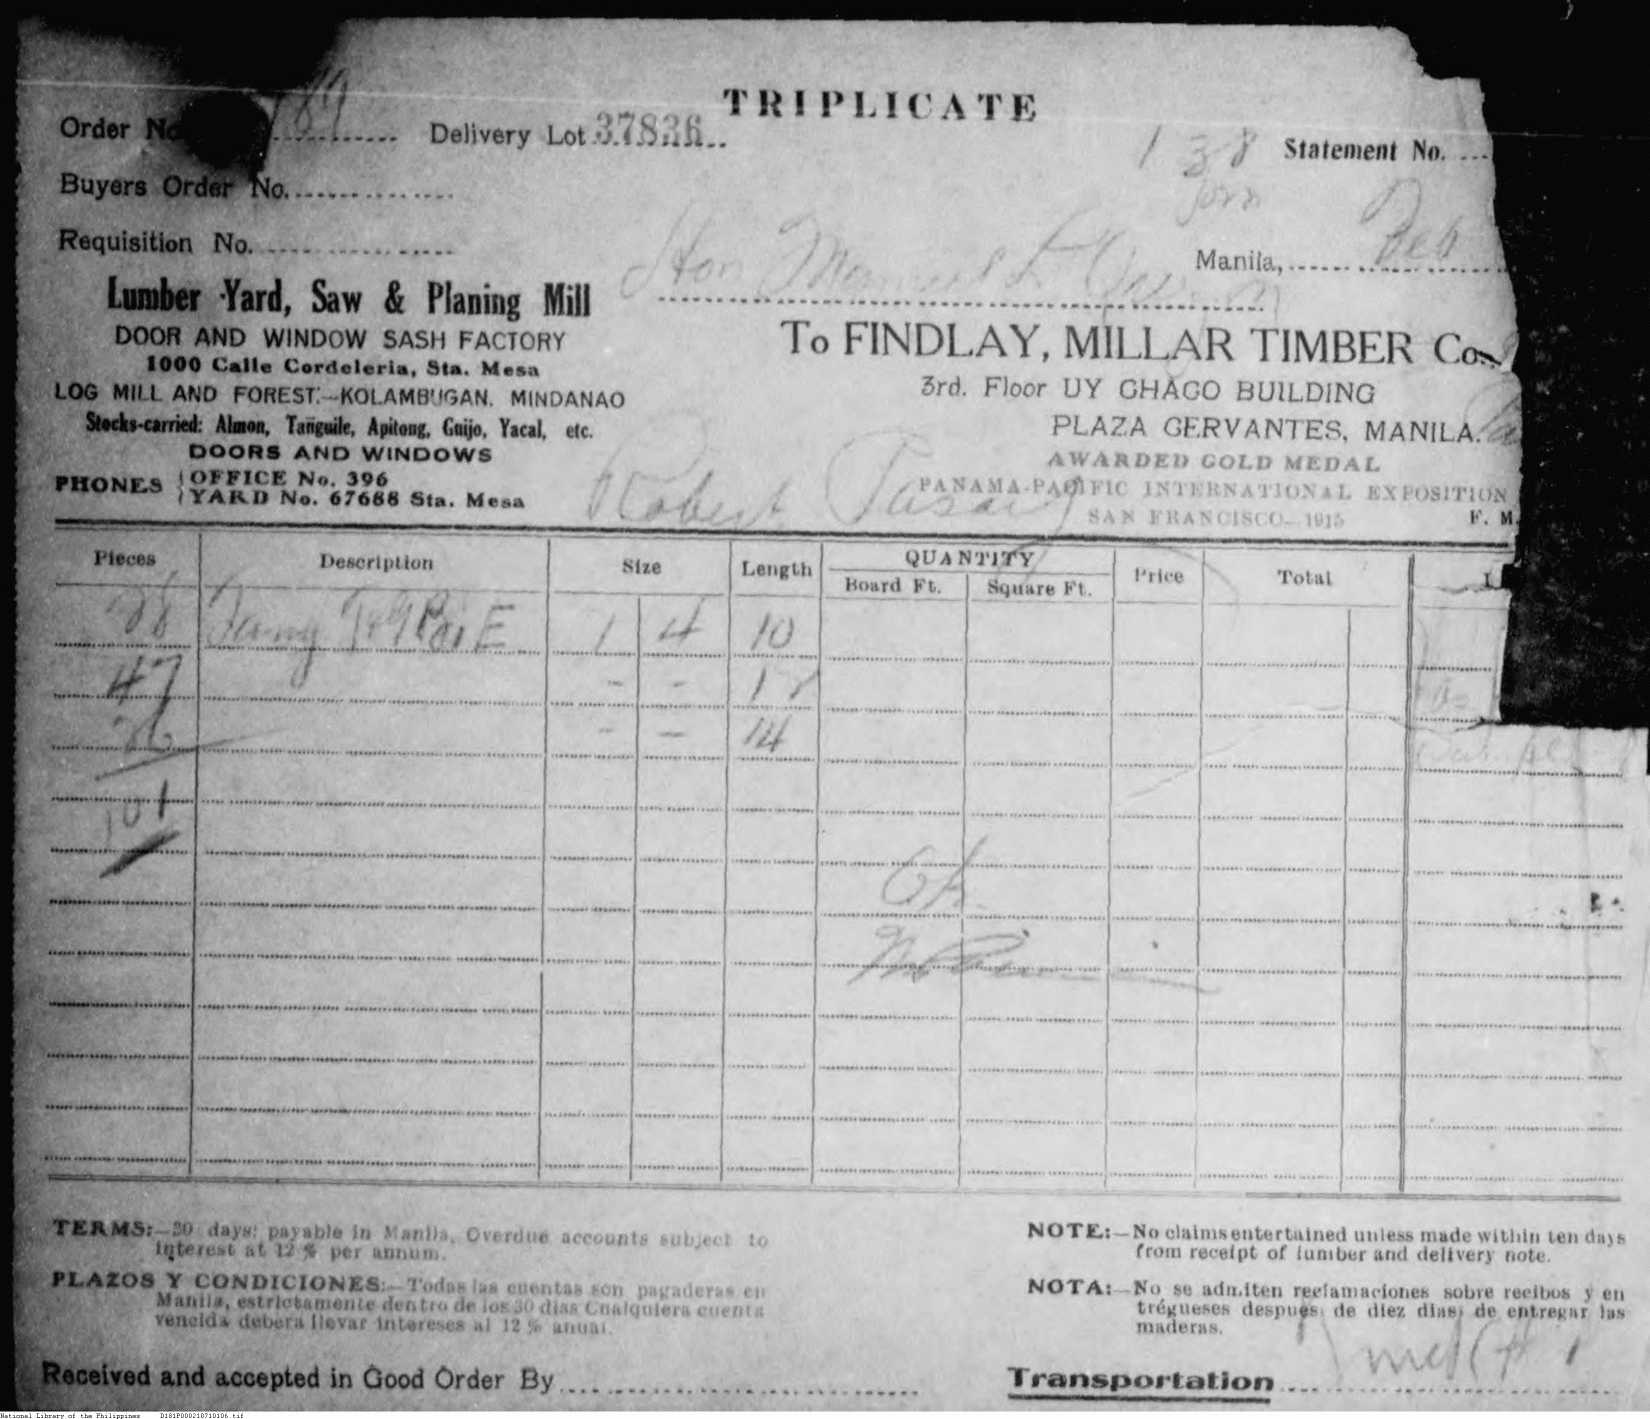 TRIPLICATE
Order No. 89
Delivery Lot 37836
138
Statement No.
Buyers Order No.
Requisition No.
Manila, Feb
Hon Manuel L Quezon
Lumber Yard, Saw & Planing Mill
DOOR AND WINDOW SASH FACTORY
1000 Calle Cordeleria, Sta. Mesa
LOG MILL AND FOREST:—KOLAMBUGAN. MINDANAO
Stocks-carried: Almon, Tañguile, Apitong, Guijo, Yacal, etc.
DOORS AND WINDOWS
PHONES OFFICE No. 396
YARD No. 67688 Sta. Mesa
To FINDLAY, MILLAR TIMBER Co.
3rd. Floor UY CHACO BUILDING
PLAZA CERVANTES, MANILA.
AWARDED GOLD MEDAL
PANAMA-PACIFIC INTERNATIONAL EXPOSITION
SAN FRANCISCO—1915
F. M.
Robert Pasay
Pieces Description Size Length QUANTITY Price Total
Board Ft. Square Ft.
28 Tang T&G E 1 4 10
47 - - 12
26 - - 14
101
Ok
TERMS:—30 days: payable in Manila. Overdue accounts subject to
interest at 12 % per annum.
PLAZOS Y CONDICIONES:—Todas las cuentas son pagaderas en
Manila, estrictamente dentro de los 30 dias Cualquiera cuenta
vencida debera llevar intereses al 12 % anual.
NOTE:—No claims entertained unless made within ten days
from receipt of lumber and delivery note.
NOTA:—No se admiten reclamaciones sobre recibos y en
trégueses después de diez dias de entregar las
maderas.
Received and accepted in Good Order By
Transportation
National Library of the Philippines D181P000210710106.tif